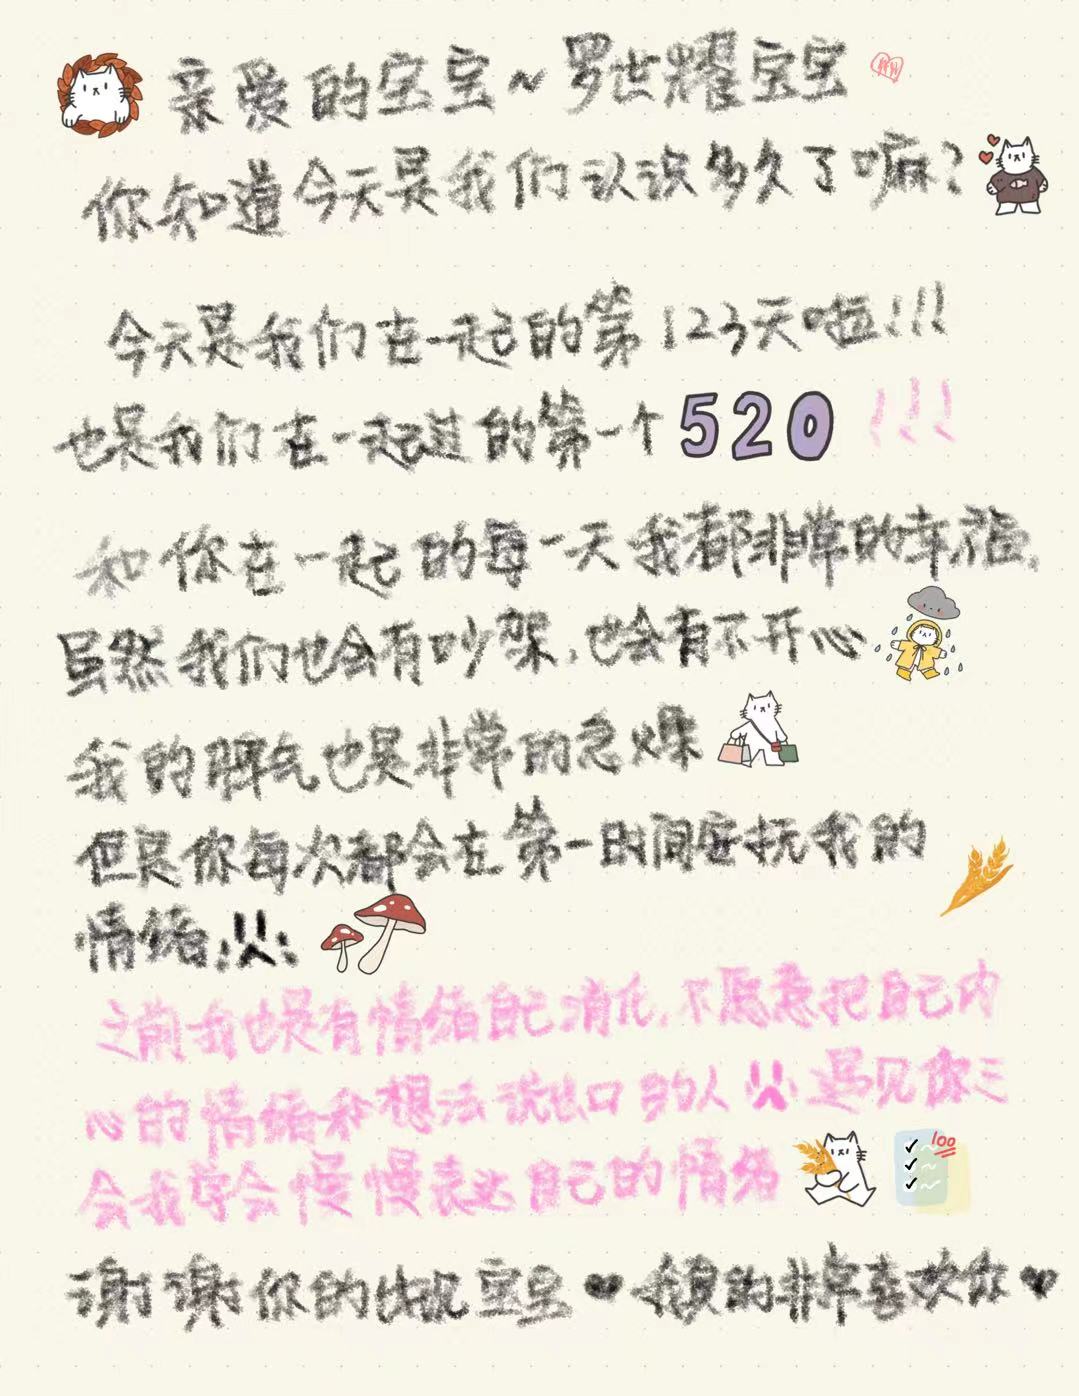 亲爱的宝宝~罗世耀宝宝
你知道今天是我们认识多久了嘛?
今天是我们在一起的第123天啦!!!
也是我们在一起过的第一个520!!!
和你在一起的每一天我都非常的幸福,
虽然我们也会有吵架,也会有不开心
我的脾气也是非常的急燥
但是你每次都会在第一时间安抚我的
情绪
之前我也是有情绪自己消化,不愿意把自己内
心的情绪和想法说出口的人 遇见你三
会我学会慢慢表达自己的情绪
100
谢谢你的出现宝宝♥我真的非常喜欢你♥